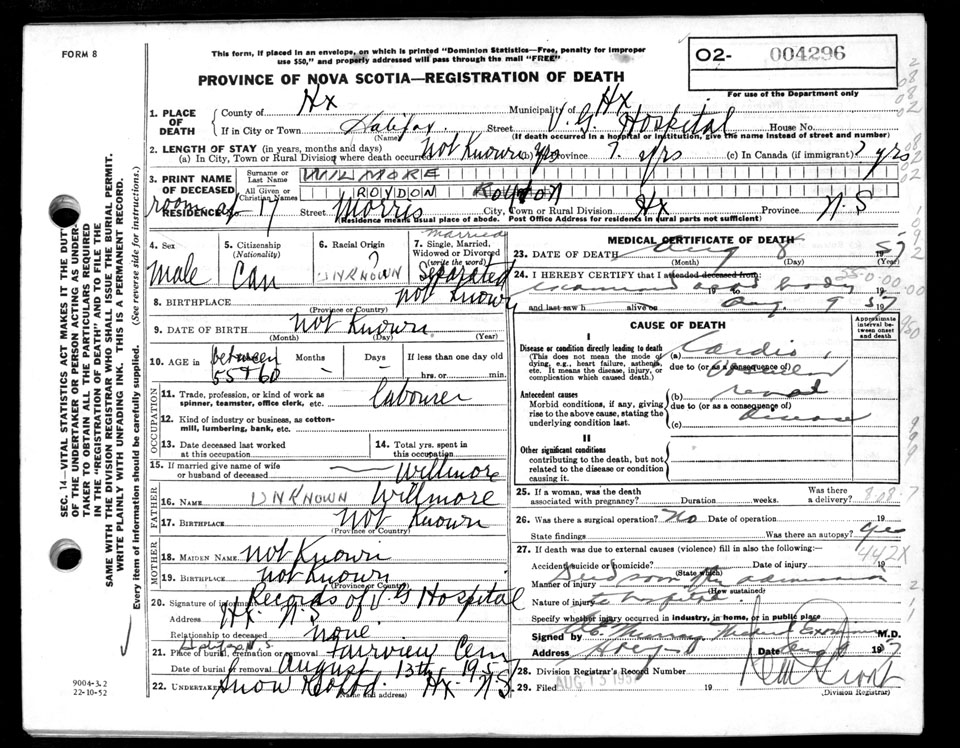 FORM 8
This form, if placed in an envelope, on which is printed "Dominion Statistics—Free, penalty for improper
use $50," and properly addressed will pass through the mail "FREE"
PROVINCE OF NOVA SCOTIA—REGISTRATION OF DEATH
02- 004296
For use of the Department only
SEC. 14—VITAL STATISTICS ACT MAKES IT THE DUTY
OF THE UNDERTAKER OR PERSON ACTING AS UNDER-
TAKER TO OBTAIN ALL THE PARTICULARS REQUIRED
IN THE "REGISTRATION OF DEATH" AND TO FILE THE
SAME WITH THE DIVISION REGISTRAR WHO SHALL ISSUE THE BURIAL PERMIT.
WRITE PLAINLY WITH UNFADING INK. THIS IS A PERMANENT RECORD.
Every item of information should be carefully supplied. (See reverse side for instructions.)
1. PLACE OF DEATH
County of Hx Municipality of Hx
If in City or Town Halifax Street V.G. Hospital House No.
(If death occurred in a hospital or institution, give the name instead of street and number)
2. LENGTH OF STAY (in years, months and days)
(a) In City, Town or Rural Division where death occurred Not Known yrs (b) Province ? yrs (c) In Canada (if immigrant) ? yrs
3. PRINT NAME OF DECEASED
Surname or Last Name WILMORE
All Given or Christian Names ROYDON
RESIDENCE room at 17 Street Morris City, Town or Rural Division Hx Province N.S
(Residence means usual place of abode. Post office addresses for residents in rural parts not sufficient)
4. Sex
male
5. Citizenship
(Nationality)
Can
6. Racial Origin
?
UNKNOWN
7. Single, Married, Widowed or Divorced
(write the word)
married
Separated
8. BIRTHPLACE not Known
(Province or Country)
9. DATE OF BIRTH not Known
(Month) (Day) (Year)
10. AGE in between 55 & 60 Months - Days - If less than one day old
hrs. or min.
OCCUPATION
11. Trade, profession, or kind of work as
spinner, teamster, office clerk, etc. labourer
12. Kind of industry or business, as cotton-
mill, lumbering, bank, etc.
13. Date deceased last worked
at this occupation
14. Total yrs. spent in
this occupation
15. If married give name of wife
or husband of deceased — Willmore
FATHER
16. NAME UNKNOWN Willmore
17. BIRTHPLACE Not Known
(Province or Country)
MOTHER
18. MAIDEN NAME not Known
19. BIRTHPLACE not Known
(Province or Country)
20. Signature of informant Records of V.G Hospital
Address Hx. N.S.
Relationship to deceased none.
21. Place of burial, cremation or removal Fairview Cem
Halifax N.S.
Date of burial or removal August 13th 1957
22. UNDERTAKER Snow & Co Ltd. Hx. N.S
(Name and address)
9004-3.2
22-10-52
MEDICAL CERTIFICATE OF DEATH
23. DATE OF DEATH Aug 8 57
(Month) (Day) (Year)
24. I HEREBY CERTIFY that I attended deceased from:
examined body
and last saw h alive on Aug. 9 1957
CAUSE OF DEATH
Approximate interval between onset and death
I
Disease or condition directly leading to death
(This does not mean the mode of
dying, e.g., heart failure, asthenia,
etc. It means the disease, injury, or
complication which caused death.)
(a) Cardio,
due to (or as a consequence of)
Antecedent causes
Morbid conditions, if any, giving
rise to the above cause, stating the
underlying condition last.
(b) renal
due to (or as a consequence of)
(c) disease
II
Other significant conditions
contributing to the death, but not
related to the disease or condition
causing it.
25. If a woman, was the death
associated with pregnancy? Duration weeks. Was there
a delivery?
26. Was there a surgical operation? No Date of operation 19
State findings Was there an autopsy? Yes
442X
27. If death was due to external causes (violence) fill in also the following:—
Accident, suicide or homicide? (State which) Date of injury 19
Manner of injury Died soon after admission
(How sustained)
Nature of injury to hospital
Specify whether injury occurred in industry, in home, or in public place
Signed by Murray Medical Examiner M.D.
Address Date Aug 9 1957
28. Division Registrar's Record Number
29. Filed AUG 13 1957 19
(Division Registrar)